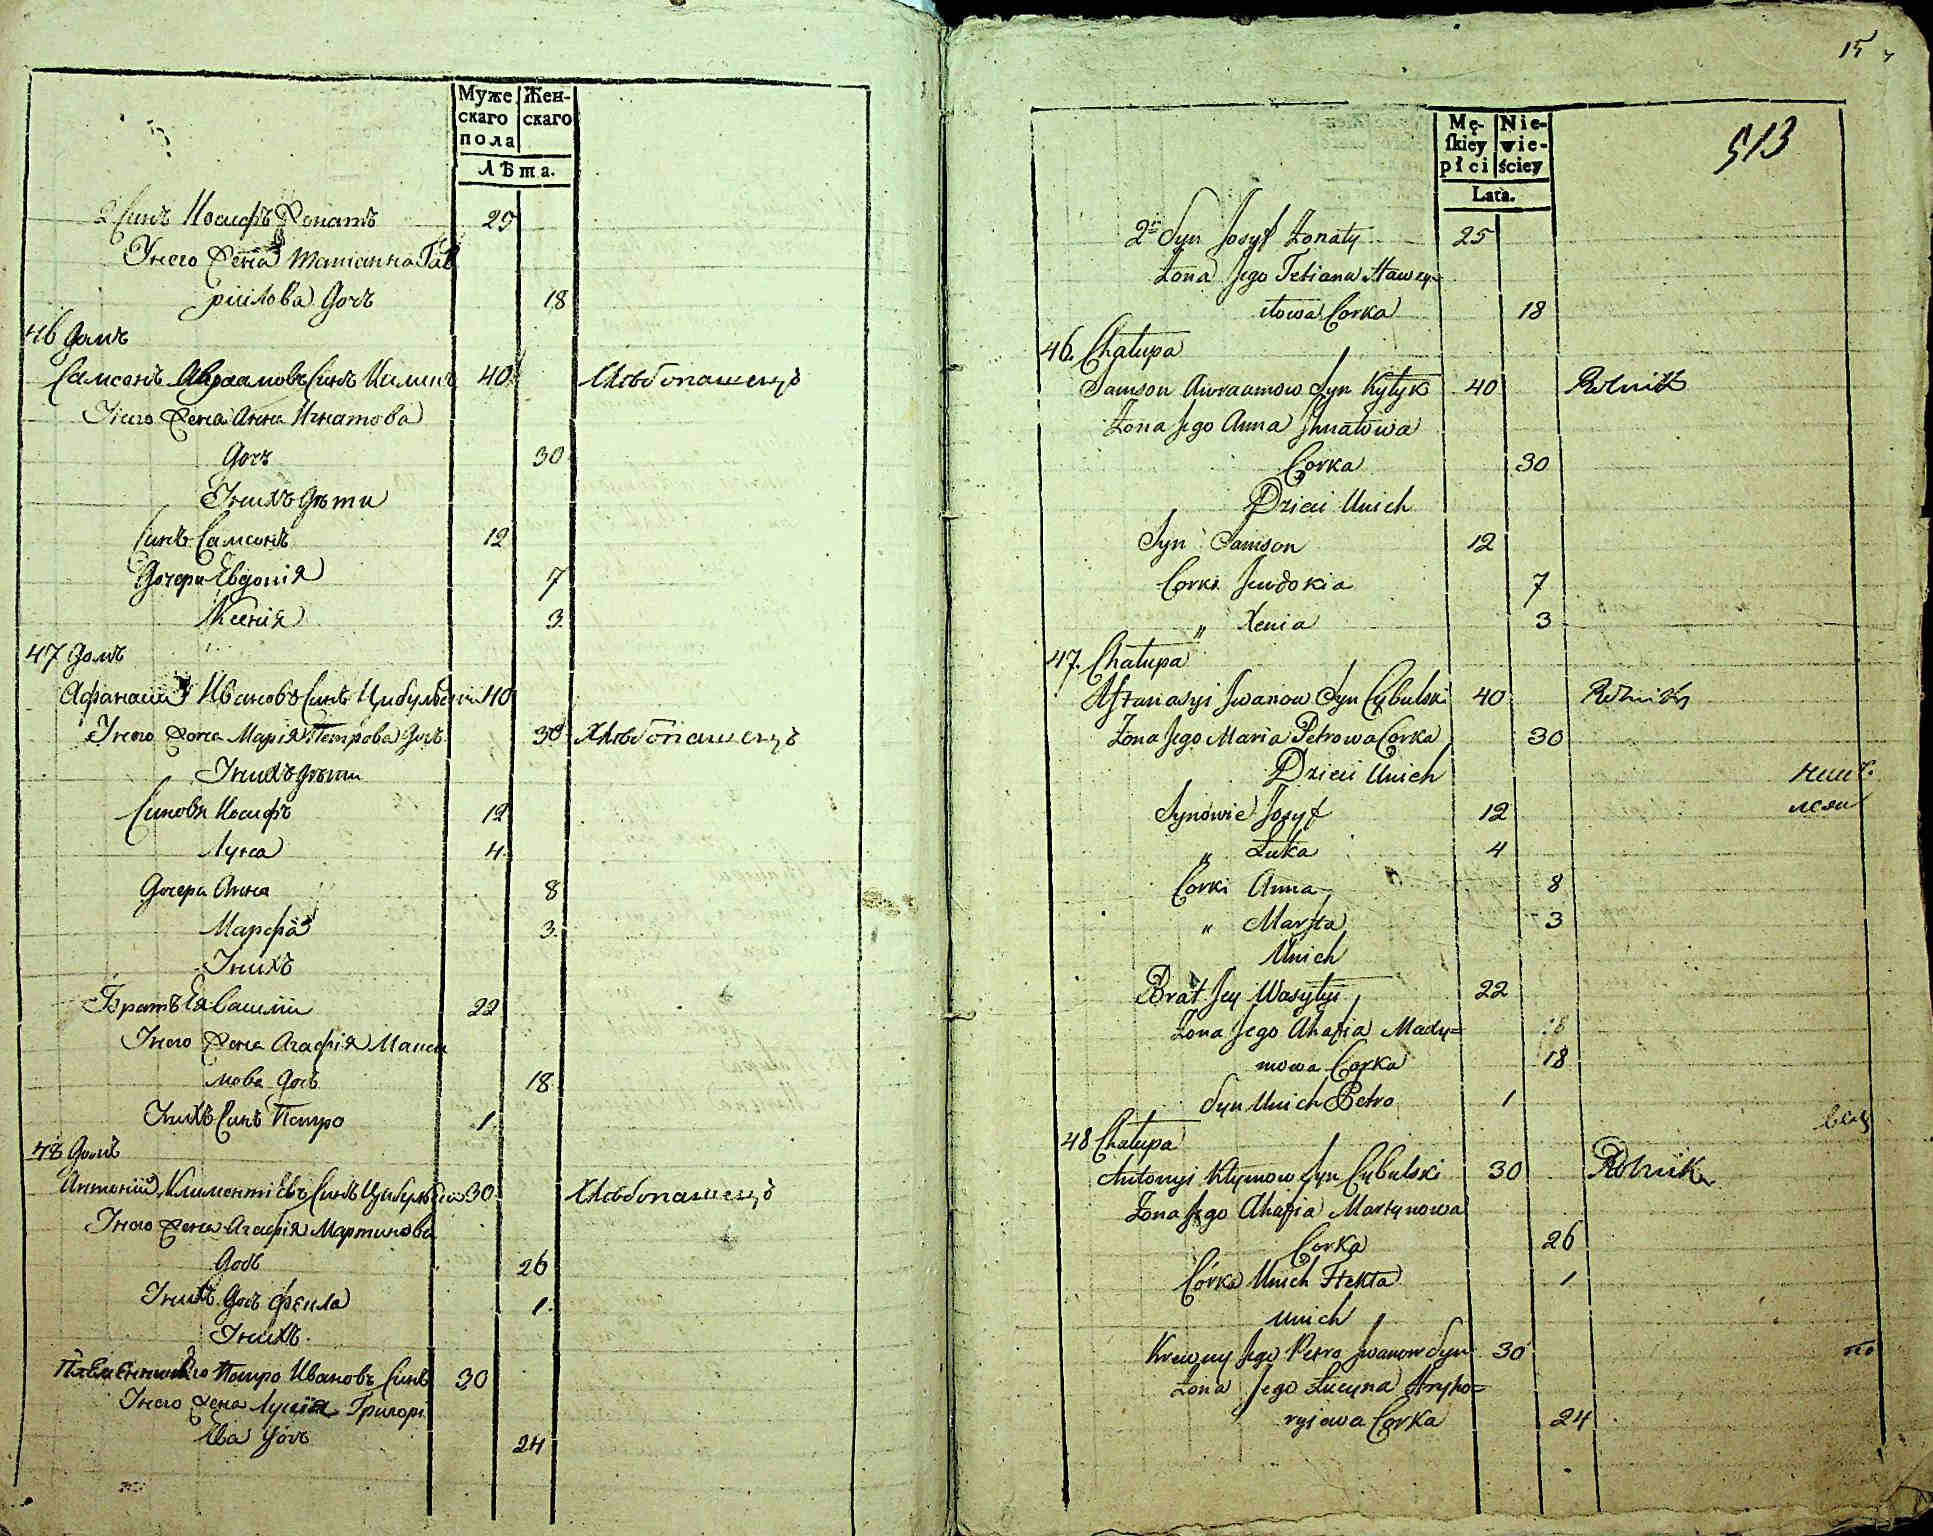 Муже
скаго
пола
Жен-
скаго
Лѣта.
2 Синъ Иосифъ Женатъ 25
У него Жена Татіанна Гав
риилова Дочь 18
46 Домъ
Самсонъ Авраамовъ Синъ 40 Хлѣбопашецъ
У него Жена Анна Игнатова
Дочь 30
У нихъ Дѣти
Синъ Самсонъ 12
Дочери Евдокія 7
Ксенія 3
47 Домъ
Афанасий Ивановъ Синъ Цибульский 40
У него Жена Марія Петрова Дочь 30 Хлѣбопашецъ
У нихъ Дѣти
Синовя Иосифъ 12
Лука 4
Дочери Анна 8
Марфа 3
У нихъ
Братъ Василии 22
У него Жена Агафія Макси
мова Дочь 18
У нихъ Синъ Петро 1
48 Домъ
Антоний Климентіевъ Синъ Цибульский 30 Хлѣбопашецъ
У него Жена Агафія Мартинова
Дочь 26
У нихъ Дочь Фекла 1
У нихъ
Племенникъ Петро Ивановъ Синъ 30
У него Жена Лукія Григори
ева Дочь 24
15
513
Mę-
skiey
płci
Nie-
wie-
ściey
Lata.
2gi Syn Josyf Żonaty 25
Żona Jego Tetiana Hawry-
iłowa Corka 18
46. Chałupa
Samson Awraamow Syn Kytyk 40 Rolnik
Żona Jego Anna Ihnatowa
Corka 30
Dzieci Unich
Syn Samson 12
Corki Jewdokia 7
„ Xenia 3
47. Chałupa
Aftanasyi Iwanow Syn Cybulski 40 Rolnik
Żona Jego Maria Petrowa Corka 30
Dzieci Unich
Synowie Josyf 12
„ Łuka 4
Corki Anna 8
„ Marfta 3
Unich
Brat Jey Wasylyi 22
Żona Jego Ahafia Mady=
mowa Corka 18
Syn Unich Petro 1
48 Chałupa
Antonyi Klymow Syn Cybulski 30 Rolnik
Żona Jego Ahafia Martynowa
Corka 26
Córka Unich Ftekta 1
Unich
Krewny Jego Petro Iwanow Syn 30
Żona Jego Łucyna Hryho=
ryiowa Corka 24